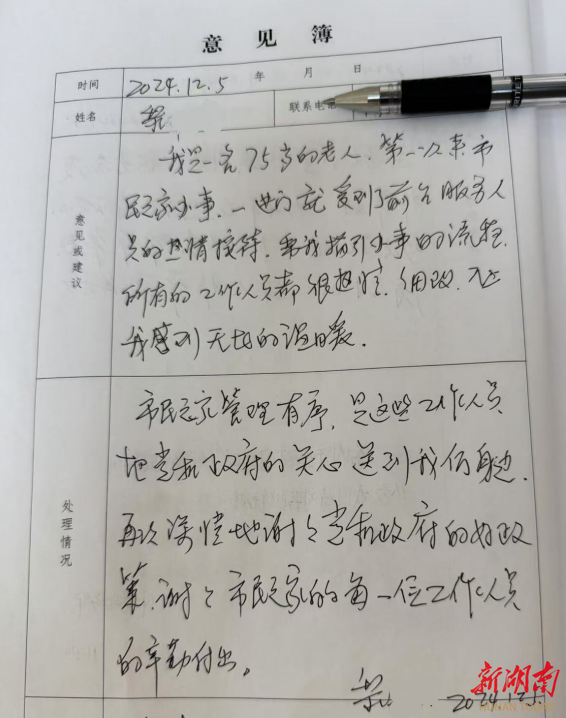 意见簿
时间 2024.12.5 年 月 日
姓名 联系电
意见或建议
我是一名75岁的老人.第一次来市
民之家办事.一进门就受到了前台服务人
员的热情接待.为我指引办事的流程.
所有的工作人员都很热情.细致.
我感到无比的温暖.
处理情况
市民之家管理有序.是这些工作人员
把党和政府的关心送到我们身边.
再次深情地谢谢党和政府的好政
策.谢谢市民之家的每一位工作人员
的辛勤付出。
2024.12.5.
新湖南
HUNAN TODAY